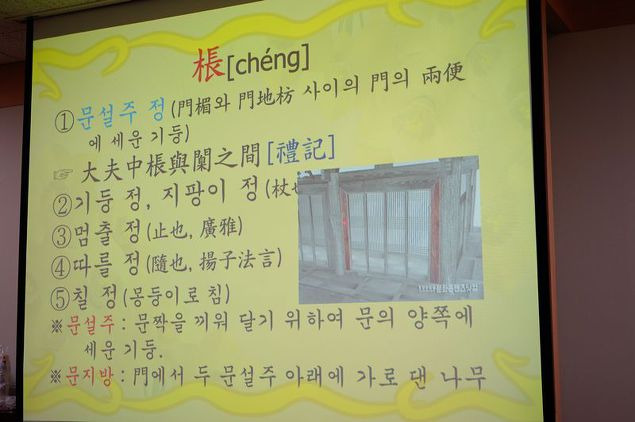 棖[chéng]
①문설주 정(門楣와 門地枋 사이의 門의 兩便
에 세운 기둥)
☞ 大夫中棖與闑之間[禮記]
②기둥 정, 지팡이 정(杖
③멈출 정(止也, 廣雅)
④따를 정(隨也, 揚子法言)
⑤칠 정(몽둥이로 침)
※문설주 : 문짝을 끼워 달기 위하여 문의 양쪽에
세운 기둥.
※문지방 : 門에서 두 문설주 아래에 가로 댄 나무